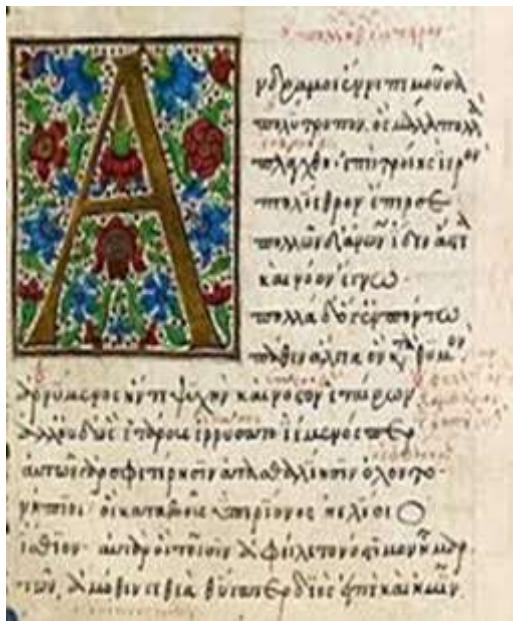 Α
νδρα μοι ἔννεπε μοῦσα
πολύτροπον, ὃς μάλα πολλὰ
πλάγχθη· ἐπεὶ τροίης ἱερὸν
πτολίεθρον ἔπερσε
πολλῶν δ' ἀνῶν ἴδεν ἄστεα
καὶ νόον ἔγνω·
πολλὰ δ' ὅ γ' ἐν πόντω
πάθεν ἄλγεα ὃν κατὰ θυμὸν
ἀρνύμενος ἥν τε ψυχὴν καὶ νόστον ἑταίρων
ἀλλ' οὐδ' ὣς ἑτάρους ἐρρύσατο ἱέμενός περ
αὐτῶν γὰρ σφετέρησιν ἀτασθαλίησιν ὄλοντο·
νήπιοι· οἳ κατὰ βοῦς ὑπερίονος ἠελίοιο
ἤσθιον· αὐτὰρ ὁ τοῖσιν ἀφείλετο νόστιμον ἦμαρ
τῶν, ἁμόθεν γε θεὰ θύγατερ διὸς εἰπὲ καὶ ἡμῖν.